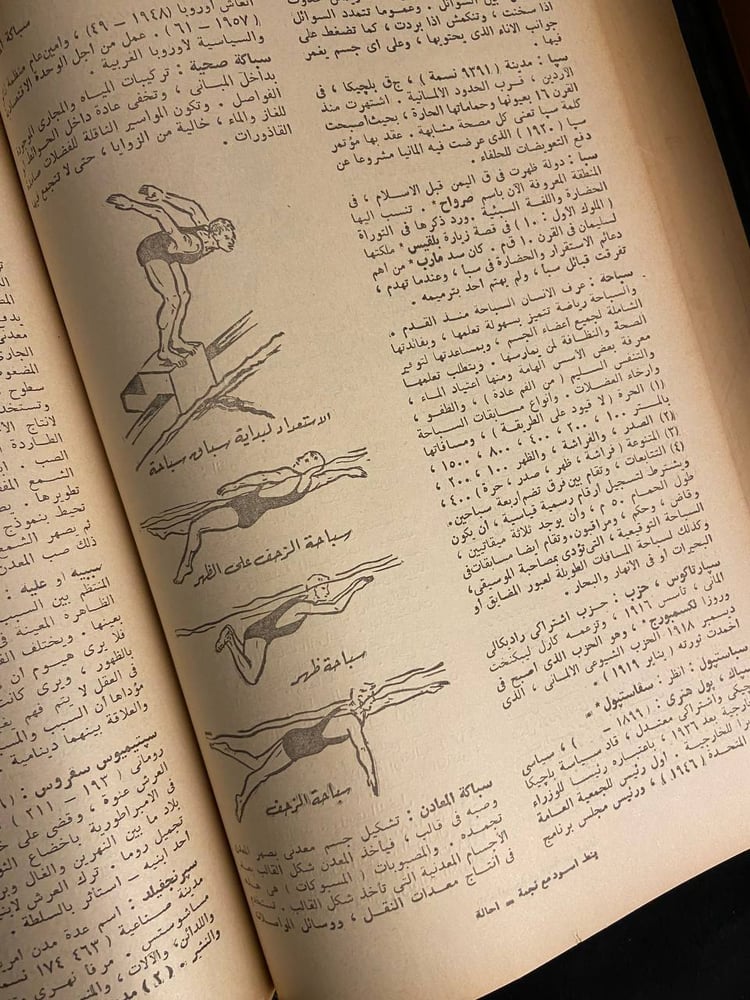 اذا سخنت ، وتنكمش اذا بردت ، كما تضغط على
جوانب الاناء الذى يحتويها ، وعلى اى جسم يغمر
فيها .
سبا : مدينة ( ٩٣٩١ نسمة ) ، ج ق بلجيكا ، فى
الآردين ، قرب الحدود الالمانية . اشتهرت منذ
القرن ١٦ بعيونها وحماماتها الحارة ، بحيث اصبحت
كلمة سبا تعنى كل مصحة مشابهة . عقد بها مؤتمر
سبا ( ١٩٢٠ ) الذى عرضت فيه المانيا مشروعا عن
دفع التعويضات للحلفاء .
سبا : دولة ظهرت فى ق اليمن قبل الاسلام ، فى
المنطقة المعروفة الآن باسم صرواح * . تنسب اليها
الحضارة واللغة السبئية . ورد ذكرها فى التوراة
( الملوك الأول : ١٠ ) فى قصة زيارة بلقيس * ملكتها
لسليمان فى القرن ١٠ ق.م . كان سد مأرب * من اهم
دعائم الاستقرار والحضارة فى سبا ، وعندما تهدم ،
تفرقت قبائل سبا ، ولم يهتم احد بترميمه .
سباحة : عرف الانسان السباحة منذ القدم .
والسباحة رياضة تتميز بسهولة تعلمها ، وبفائدتها
الشاملة لجميع اعضاء الجسم ، وبمساعدتها لتوفير
الصحة والنظافة لمن يمارسها . ويتطلب تعلمها
معرفة بعض الأسس الهامة ومنها اعتياد الماء ،
والتنفس السليم ( من الفم عادة ) ، والطفو ،
وارخاء العضلات . وانواع مسابقات السباحة
(١) الحرة ( لا قيود على الطريقة ) ، ومسافاتها
بالمتر ١٠٠ ، ٢٠٠ ، ٤٠٠ ، ٨٠٠ ، ١٥٠٠ ،
(٢) الصدر ، والفراشة ، والظهر ١٠٠ ، ٢٠٠ ،
(٣) المتنوعة ( فراشة ، ظهر ، صدر ، حرة ) ٤٠٠ ،
(٤) التتابعات ، وتقام بين فرق تضم اربعة سباحين .
ويشترط لتسجيل ارقام رسمية قياسية ، أن يكون
طول الحمام ٥٠ م ، وان يوجد ثلاثة ميقاتيين ،
وقاض ، وحكم ، ومراقبون . وتقام ايضا مسابقات فى
السباحة التوقيعية ، التى تؤدى بمصاحبة الموسيقى ،
وكذلك لسباحة المسافات الطويلة لعبور المضايق او
البحيرات او فى الأنهار والبحار .
سبارتاكوس ، حزب : حزب اشتراكى راديكالى
المانى ، تأسس ١٩١٦ ، وتزعمه كارل ليبكنخت
وروزا لكسمبورج * ، وهو الحزب الذى اصبح فى
ديسمبر ١٩١٨ الحزب الشيوعى الالمانى ، الذى
اخمدت ثورته ( يناير ١٩١٩ ) .
سباستبول : انظر : سفاستبول * =
سباك ، بول هنرى : ( ١٨٩٩ - ) ، سياسى
واشتراكى معتدل ، قاد سياسة بلجيكا
بعد ١٩٣٦ ، باعتباره رئيسا للوزراء
للخارجية . اول رئيس للجمعية العامة
المتحدة ( ١٩٤٦ ) ، ورئيس مجلس برنامج
أوروبا ( ١٩٤٨ – ٤٩ ) ، وامين عام منظمة
( ١٩٥٧ – ٦١ ) . عمل من اجل الوحدة
والسياسية لأوروبا الغربية .
سباكة صحية : تركيبات المياه والمجارى
بداخل المبانى ، وتخفى عادة داخل
الفواصل . وتكون المواسير الناقلة للفضلات
للغاز والماء ، خالية من الزوايا ، حتى لا تتجمع
القاذورات .
الاستعداد لبداية سباق سباحة
سباحة الزحف على الظهر
سباحة ظهر
سباحة الزحف
سباكة المعادن : تشكيل جسم معدنى بصهر
وصبه فى قالب ، فيأخذ المعدن شكل القالب
تجمده . والمصبوبات ( المسبوكات ) هى
الأجسام المعدنية التى تأخذ شكل القالب .
فى أنتاج معدات النقل ، ووسائل
بنط اسود مع نجمة = احالة
سببيه او عليه :
المنتظم بين السبب
الظاهره المعينة فى
بعينها . ويختلف
فلا يرى هيوم ان
بالظهور ، ويرى كانت
فى العقل لا يتم فهم
مؤداها أن السبب والمسبب
والعلاقة بينهما دينامية .
سبتيميوس سفروس :
رومانى ( ١٩٣ – ٢١١ )
العرش عنوة ، وقضى على
فى الامبراطورية باخضاع
بلاد ما بين النهرين والغال
تجميل روما . ترك العرش
احد ابنيه – استأثر بالسلطة .
سبرنجفيلد : اسم عدة مدن
مدينة صناعية ( ١٧٤ ٤٦٣
ماساشوستس . مرفأ نهرى
واللدائن ، والآلات ،
والنشر . (٢)